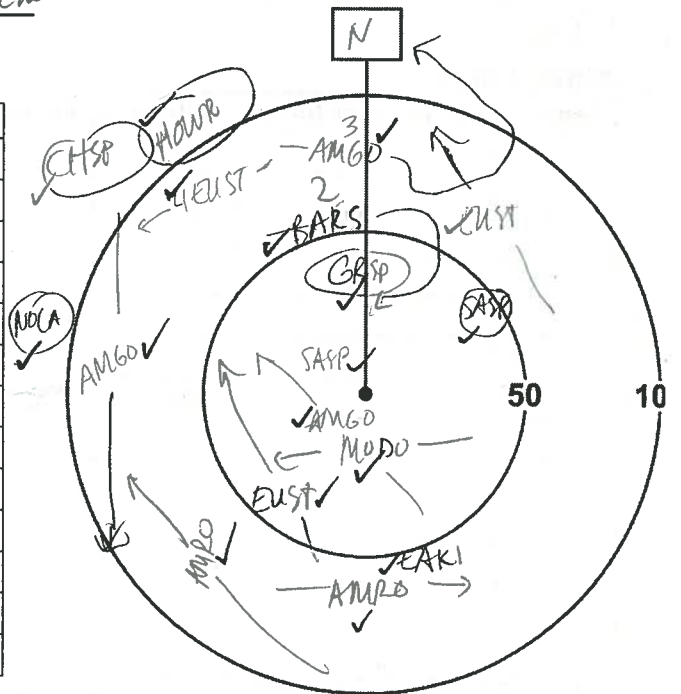 N
HOWR
CHSP
3
AMGO
4EUST
2
BARS
EUST
GRSP
SASP
NOCA
AMGO
SASP
50
10
AMGO
MODO
EUST
AMRO
EAKI
AMRO